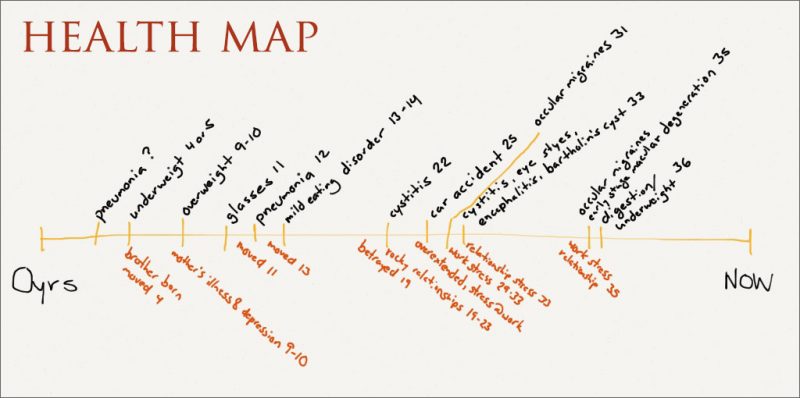 HEALTH MAP
pneumonia ?
underweigt 4 or 5
overweight 9-10
glasses 11
pneumonia 12
mild eating disorder 13-14
cystitis 22
car accident 25
occular migraines 31
cystitis, eye styes,
encephalitis, bartholin's cyst 33
occular migraines
early stage macular degeneration 35
digestion/ 36
underweight
0yrs
NOW
brother born
moved 4
mother's illness & depression 9-10
moved 11
moved 13
rocky relationships 19-23
betrayed 19
overextended, stress@work
work stress 29-33
relationship stress 33
work stress
relationship 35